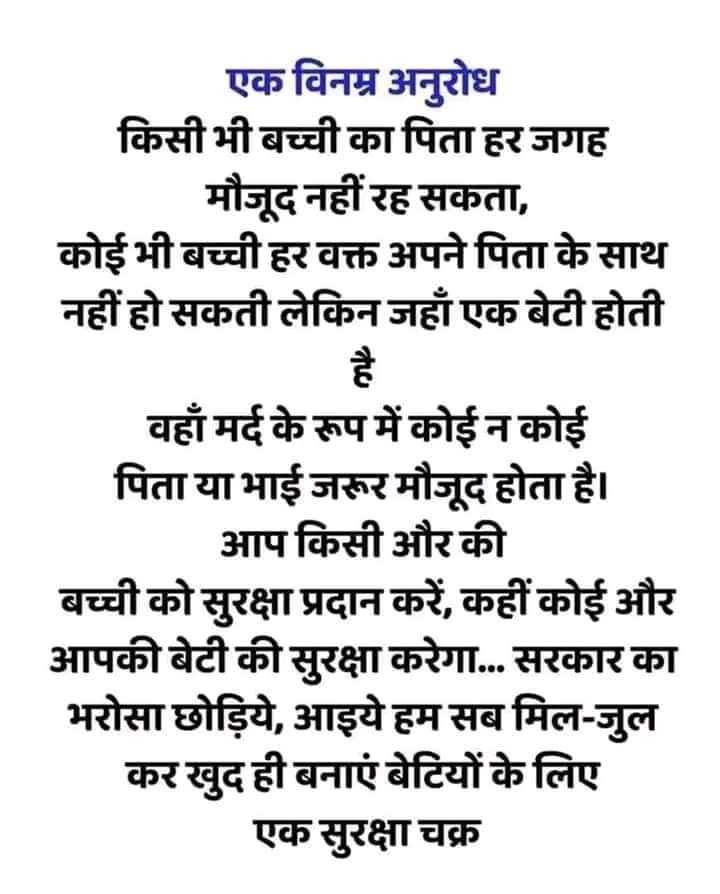 एक विनम्र अनुरोध
किसी भी बच्ची का पिता हर जगह
मौजूद नहीं रह सकता,
कोई भी बच्ची हर वक्त अपने पिता के साथ
नहीं हो सकती लेकिन जहाँ एक बेटी होती
है
वहाँ मर्द के रूप में कोई न कोई
पिता या भाई जरूर मौजूद होता है।
आप किसी और की
बच्ची को सुरक्षा प्रदान करें, कहीं कोई और
आपकी बेटी की सुरक्षा करेगा... सरकार का
भरोसा छोड़िये, आइये हम सब मिल-जुल
कर खुद ही बनाएं बेटियों के लिए
एक सुरक्षा चक्र